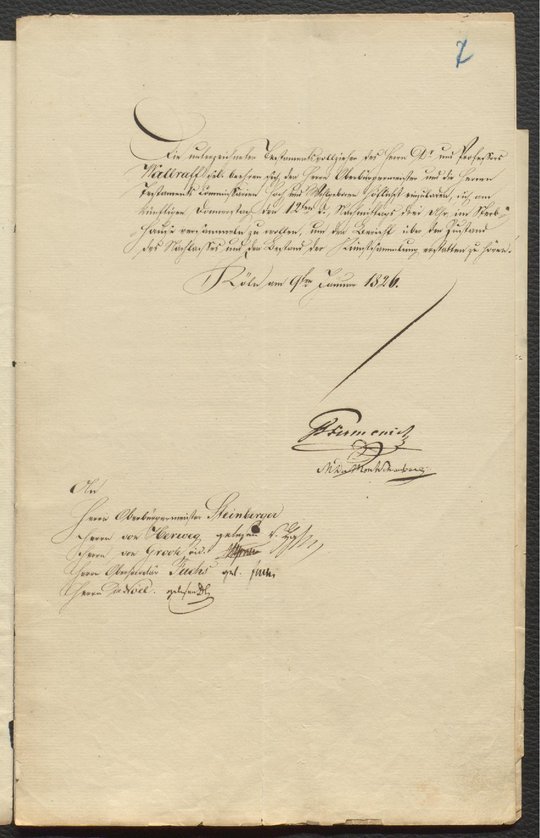 7
Die unterzeichneten Testamentsvollzieher des Herrn Dr und Professors
Wallraff beehren sich den Herrn Oberbürgermeister und die Herren
Testaments Commissarien Hoch und Wohlgeboren höflichst einzuladen, sich am
künftigen Donnerstag den 12ten d, Nachmittags drei Uhr im Sterb-
hause versammeln zu wollen, um den Bericht über den Zustand
des Nachlasses und den Bestand der Kunstsammlung erstatten zu hören.
Köln am 9ten Januar 1826.
JFirmenich
An
Herrn Oberbürgermeister Steinberger
Herrn von Herweg, gelesen
Herrn von Groote
Herrn Obersecretär Fuchs gel.
Herrn DeNoel. gelesen DN